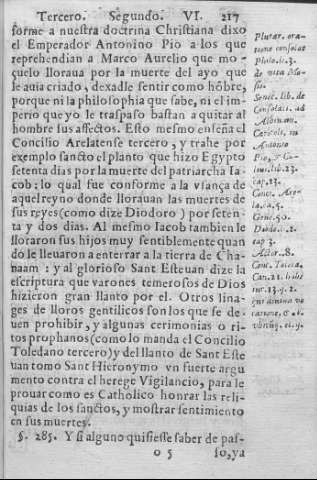 Tercero. Segundo. VI. 217
forme a nuestra doctrina Christiana dixo
el Emperador Antonino Pio a los que
reprehendian a Marco Aurelio que mo-
çuelo lloraua por la muerte del ayo que
le auia criado, dexadle sentir como hõbre,
porque ni la philosophia que sabe, ni el im-
perio que yo le traspaso bastan a quitar al
hombre sus affectos. Esto mesmo enseña el
Concilio Arelatense tercero, y trahe por
exemplo sancto el planto que hizo Egypto
setenta dias por la muerte del patriarcha Ia-
cob: lo qual fue conforme a la vsança de
aquel reyno donde llorauan las muertes de
sus reyes (como dize Diodoro) por seten-
ta y dos dias. Al mesmo Iacob tambien le
lloraron sus hijos muy sentiblemente quan
do le lleuaron a enterrar a la tierra de Cha-
naam: y al glorioso Sant Esteuan dize la
escriptura que varones temerosos de Dios
hizieron gran llanto por el. Otros lina-
ges de lloros gentilicos son los que se de-
uen prohibir, y algunas cerimonias o ri-
tos prophanos (como lo manda el Concilio
Toledano tercero) y del llanto de Sant Este
uan tomo Sant Hieronymo vn fuerte argu
mento contra el herege Vigilancio, para le
prouar como es Catholico honrar las reli-
quias de los sanctos, y mostrar sentimiento
en sus muertes.
§. 285. Y si alguno quisiesse saber de pas-
o 5 so, ya
Plutar. ora-
tione consolat
Philo. li. 3.
de vita Mo-
si.
Senec. lib. de
Consolati. ad
Albinam.
Capitoli. in
Antonio
Pio,
li. 23.
cap. 13.
Conc. Arg-
la. ca. 5.
Gene. 50.
Diodo. l. 2.
cap 3.
Actor. 8.
Conc. Toleta.
Can. 22. &
13. q. 2.